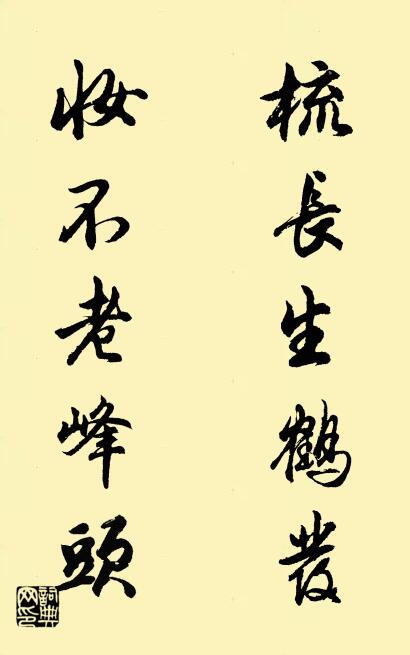 梳長生鶴發
妝不老峰頭
詞典网印